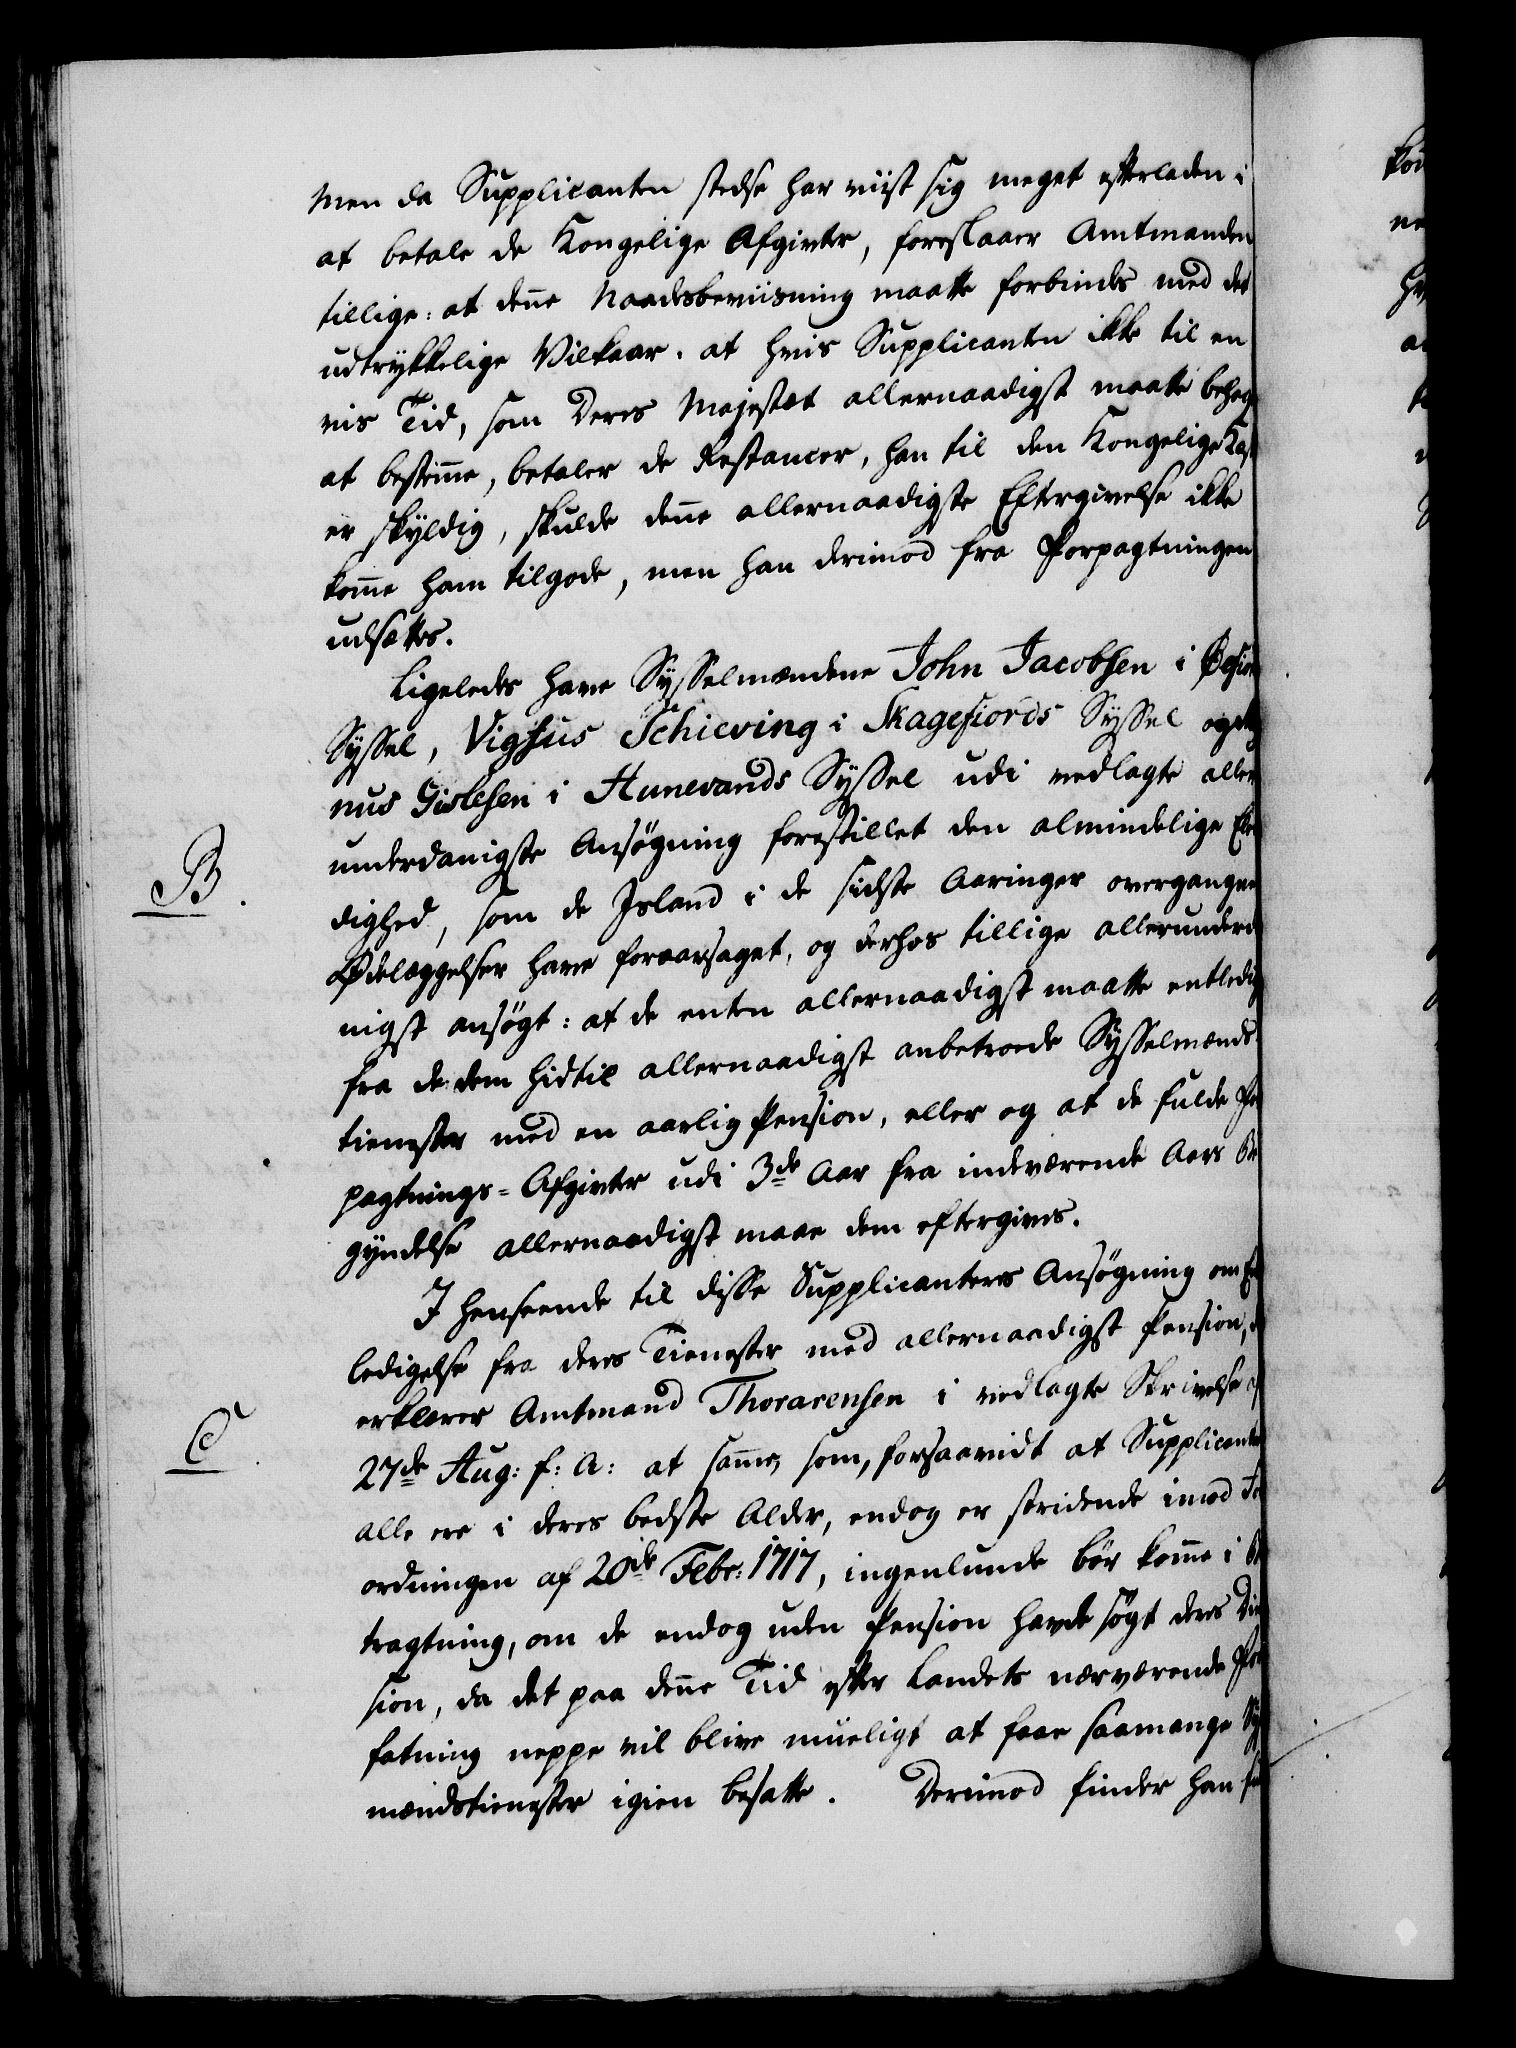 Men da Supplicanten stedse har viist sig meget efterladen i
at betale de Kongelige Afgivter, foreslaaer Amtmanden
tillige: at denne Naadesbeviisning maatte forbindes med det
udtrykkelige Vilkaar. at hvis Supplicanten ikke til en
vis Tid, som Deres Majestæt allernaadigst maatte behage
at bestemme, betaler de Restancer, han til den Kongelige Kas
er skyldig, skulde denne allernaadigste Eftergivelse ikke
komme ham tilgode, men han derimod fra Forpagtningen
udsættes.
Ligeledes have Sysselmændene John Jacobsen i Øefior
Syssel, Vigfus Schieving i Skagefiords Syssel og
nus Gislesen i Hunevands Syssel udi vedlagte aller
B.
underdanigste Ansøgning forestillet den almindelige Elen
dighed, som de Island i de sidste Aaringer overgangne
Ødelæggelser have foraarsaget, og derhos tillige allerunderda
nigst ansøgt: at de enten allernaadigst maatte entledig
fra de dem hidtil allernaadigst anbetroede Sysselmænds
tienester med en aarlig Pension, eller og at de fulde For
pagtnings-Afgivter udi 3de Aar fra indeværende Aars Be
gyndelse allernaadigst maae dem eftergives.
I Henseende til disse Supplicanters Ansøgning om Ent
ledigelse fra deres Tienester med allernaadigst Pension,
erklærer Amtmand Thorarensen i vedlagte Skrivelse af
C.
27de Aug: f: A: at samme, som, forsaavidt at Supplicanterne
alle ere i deres bedste Alder, endog er stridende imod For
ordningen af 20de Febr: 1717, ingenlunde bør komme i Be
tragtning, om de endog uden Pension havde søgt deres Dimis
sion, da det paa denne Tid efter Landets nærværende For
fatning neppe vil blive mueligt at faae saamange Sy
mændstienester igien besatte. Derimod finder han